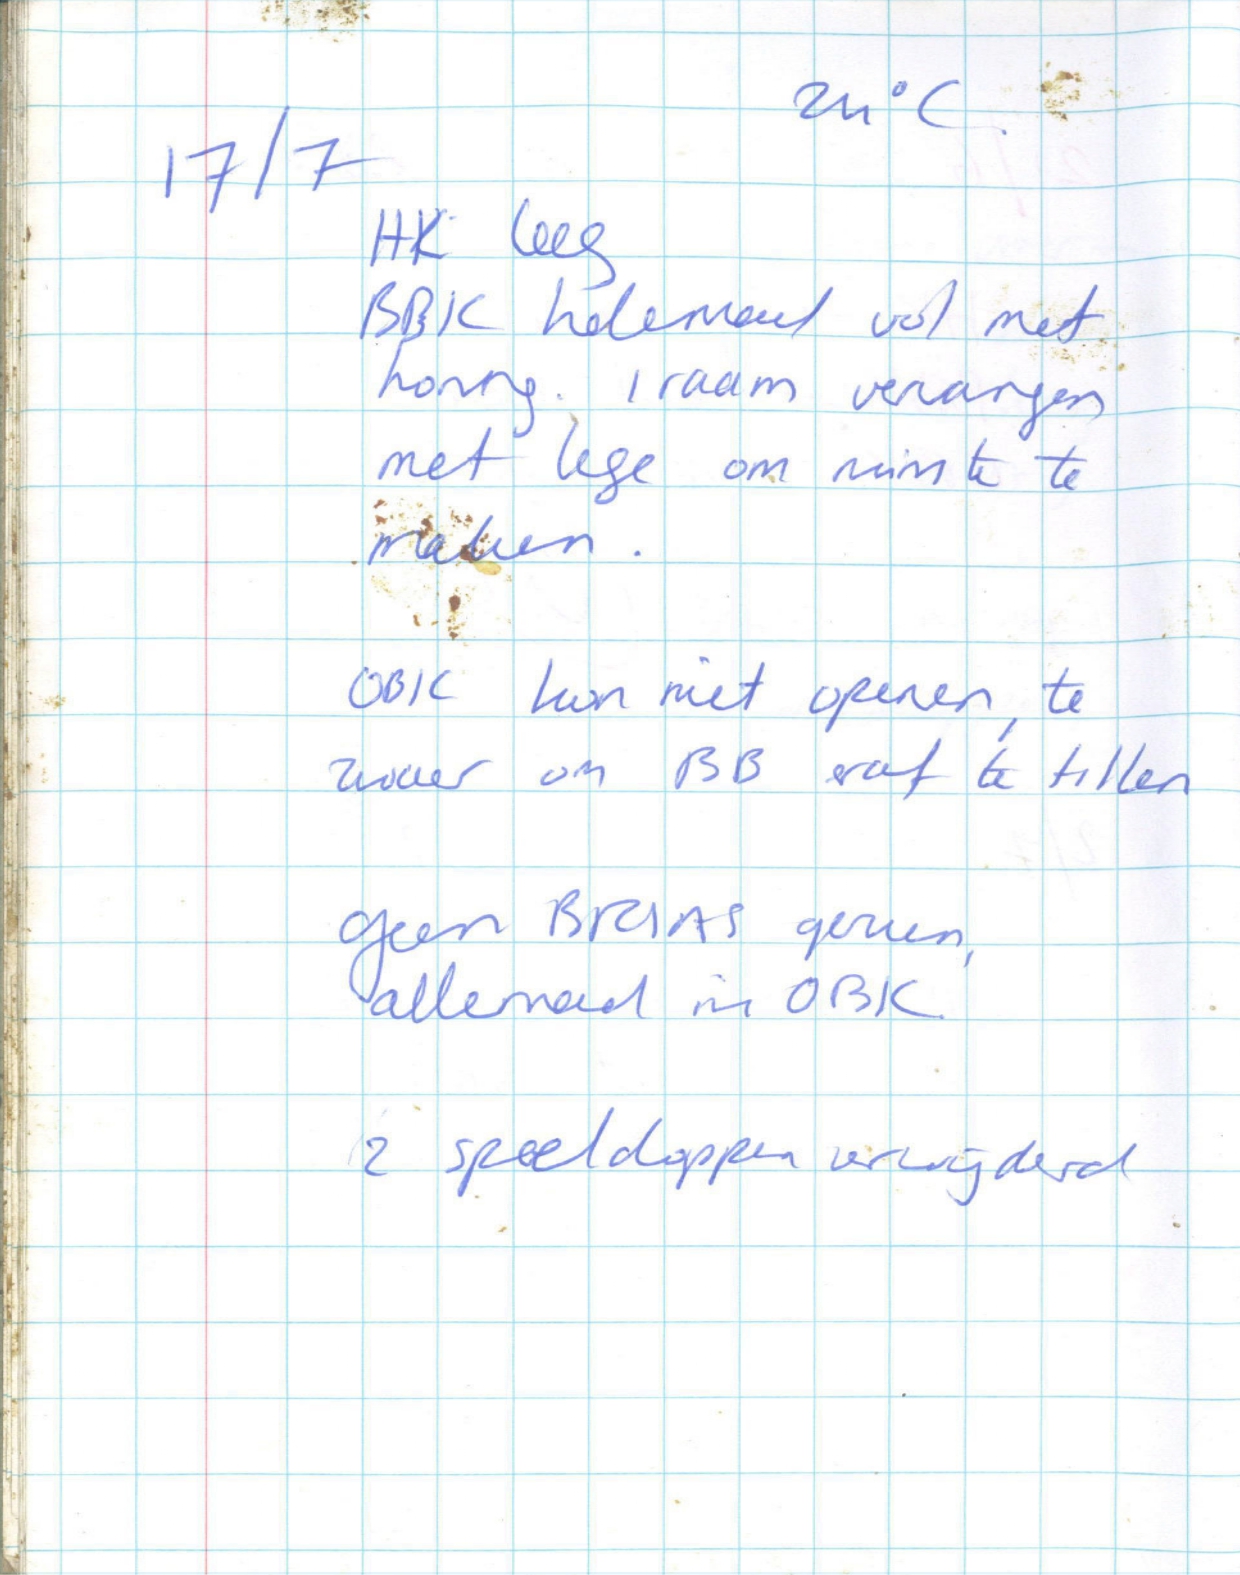 24°C.
17/7
HK leeg
BBK helemaal vol met
honing. 1 raam vervangen
met lege om ruimte te
maken.
OBK kon niet openen, te
zwaar om BB eraf te tillen
geen BRIAS gezien,
allemaal in OBK
2 speeldoppen verwijderd